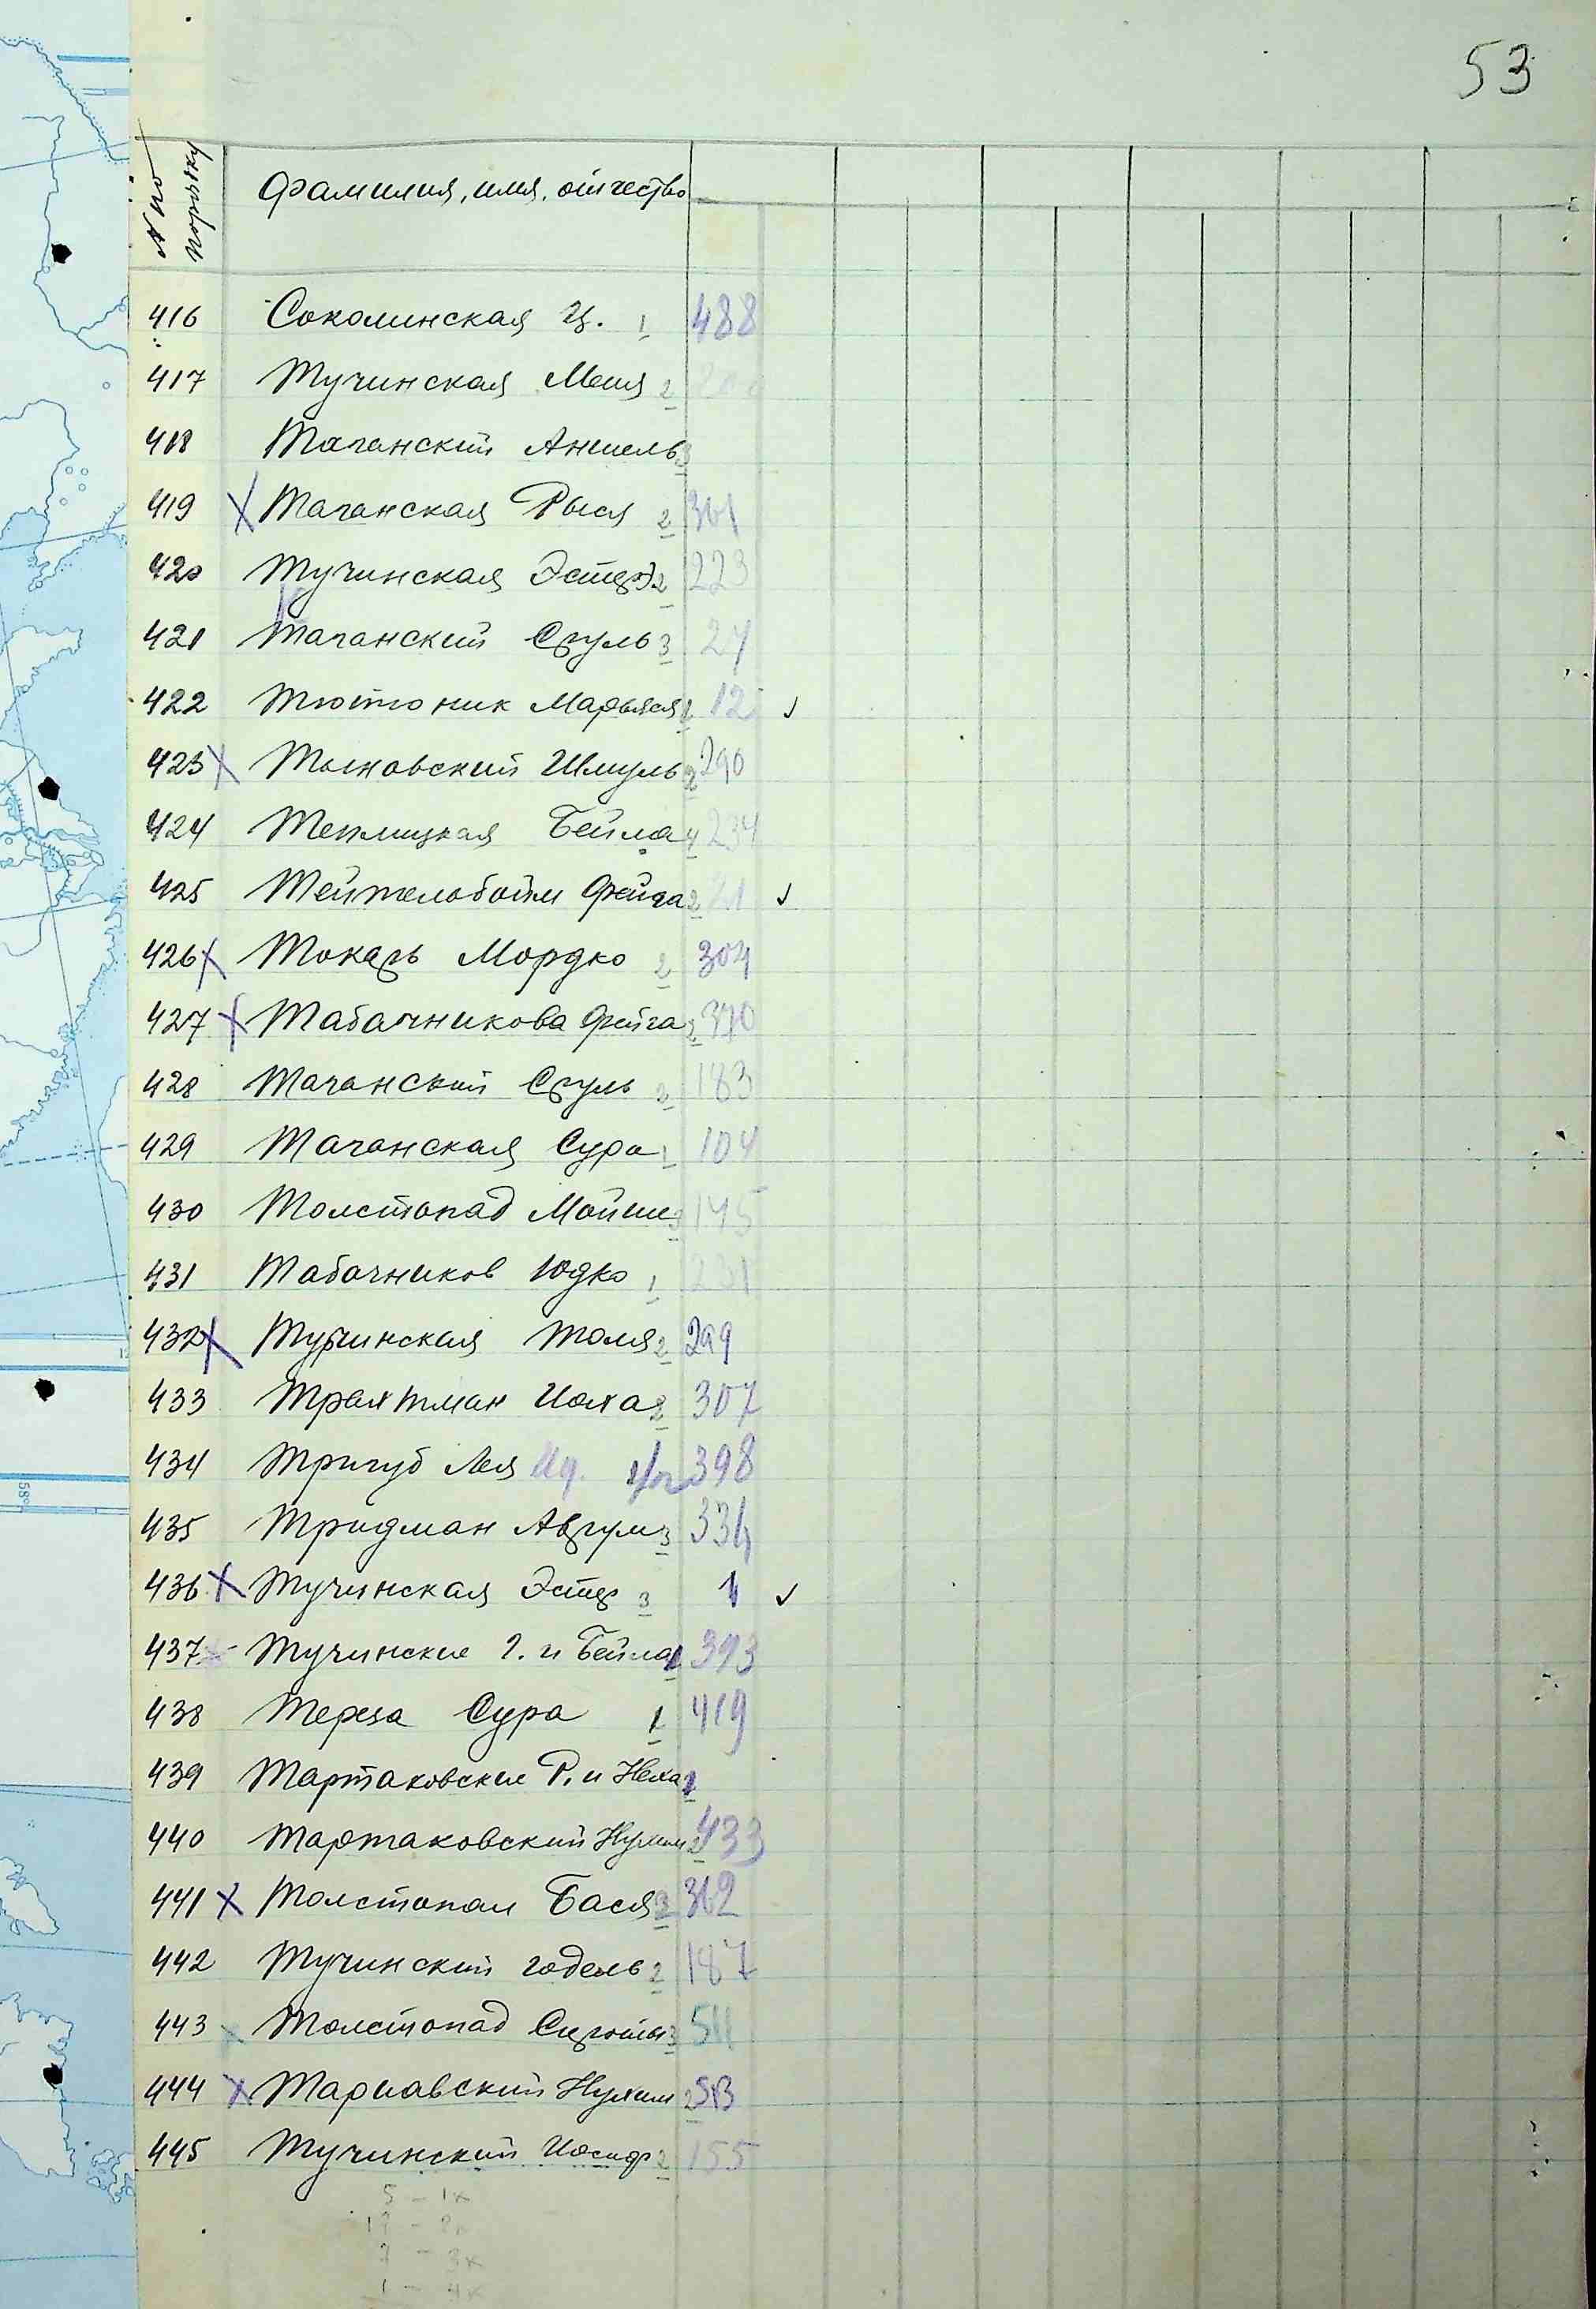 53
№ по порядку
Фамилия, имя, отчество
416 Соколинская Ц. 1 488
417 Тучинская Меня 2
418 Таганский Аншель 3
419 X Таганская Рыся 2 361
420 Тучинская Эстер 2 223
421 Таганский Сруль 3 24
422 Тютюник Марьяся 1 12 ✓
423 X Тыновский Шмуль 2 290
424 Теплицкая Бейла 4 234
425 Фейга 2 21 ✓
426 X Токарь Мордко 2 304
427 X Табачникова Фейга 2 370
428 Таганский Сруль 2 183
429 Таганская Сура 1 104
430 Толстопад Мойше 3 145
431 Табачников Юдко 1 231
432 X Тучинская Толя 2 299
433 Трахтман Иоха 2 307
434 Тригуб Лея 398
435 Тридман Аврум 3 334
436 X Тучинская Эстер 3 1 ✓
437 Тучинские Г. и Бейла 1 393
438 Тереза Сура 1 419
439 Тартаковские Р. и Неха 1
440 Тартаковский Нухим 2 433
441 X Толстопал Бася 3 362
442 Тучинский Годель 2 187
443 x Толстопад Сироты 3 511
444 X Тарнавский Нухим 2 513
445 Тучинский Иосиф 2 155
5 – 1к
17 – 2к
7 – 3к
1 – 4к
58°